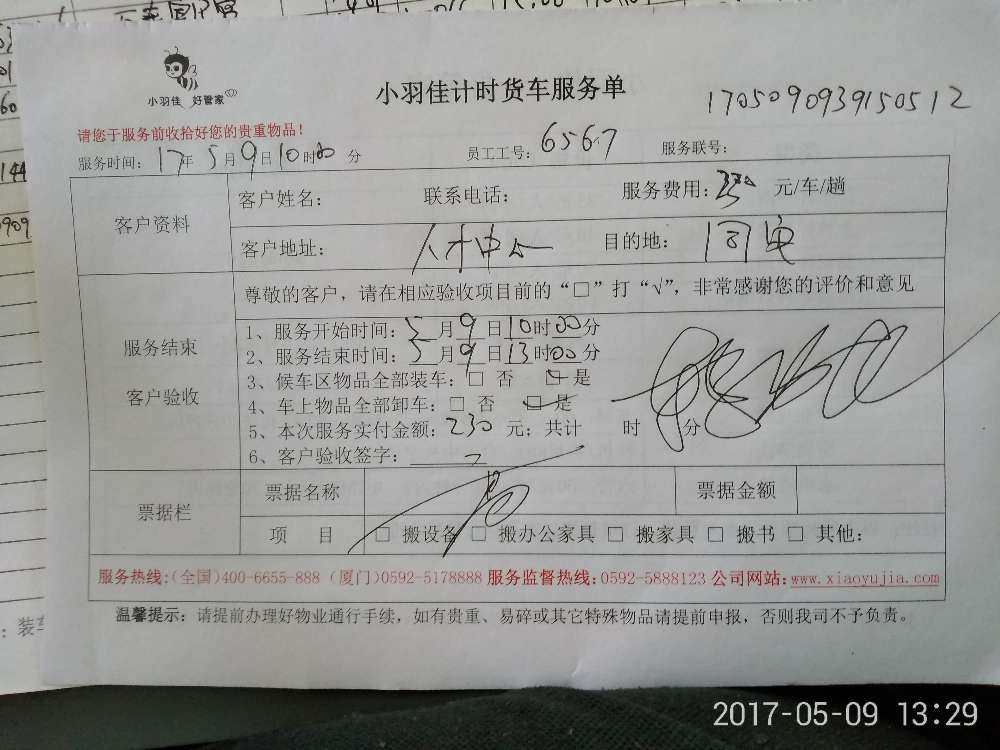 小羽佳 好管家
小羽佳计时货车服务单
1705090939150512
请您于服务前收拾好您的贵重物品！
服务时间：17年5月9日10时00分 员工工号：6567 服务联号：
客户资料
客户姓名： 联系电话： 服务费用： 元/车/趟
客户地址：人才中心 目的地：
服务结束
客户验收
尊敬的客户，请在相应验收项目前的“□”打“√”，非常感谢您的评价和意见
1、服务开始时间：5月9日10时00分
2、服务结束时间：5月9日13时00分
3、候车区物品全部装车：□ 否 □ 是
4、车上物品全部卸车：□ 否 □ 是
5、本次服务实付金额：230元；共计 时 分
6、客户验收签字：
票据栏
票据名称 票据金额
项 目 □ 搬设备 □ 搬办公家具 □ 搬家具 □ 搬书 □ 其他：
服务热线:(全国)400-6655-888 (厦门)0592-5178888 服务监督热线:0592-5888123 公司网站:www.xiaoyujia.com
温馨提示：请提前办理好物业通行手续，如有贵重、易碎或其它特殊物品请提前申报，否则我司不予负责。
：装车
144
2017-05-09 13:29